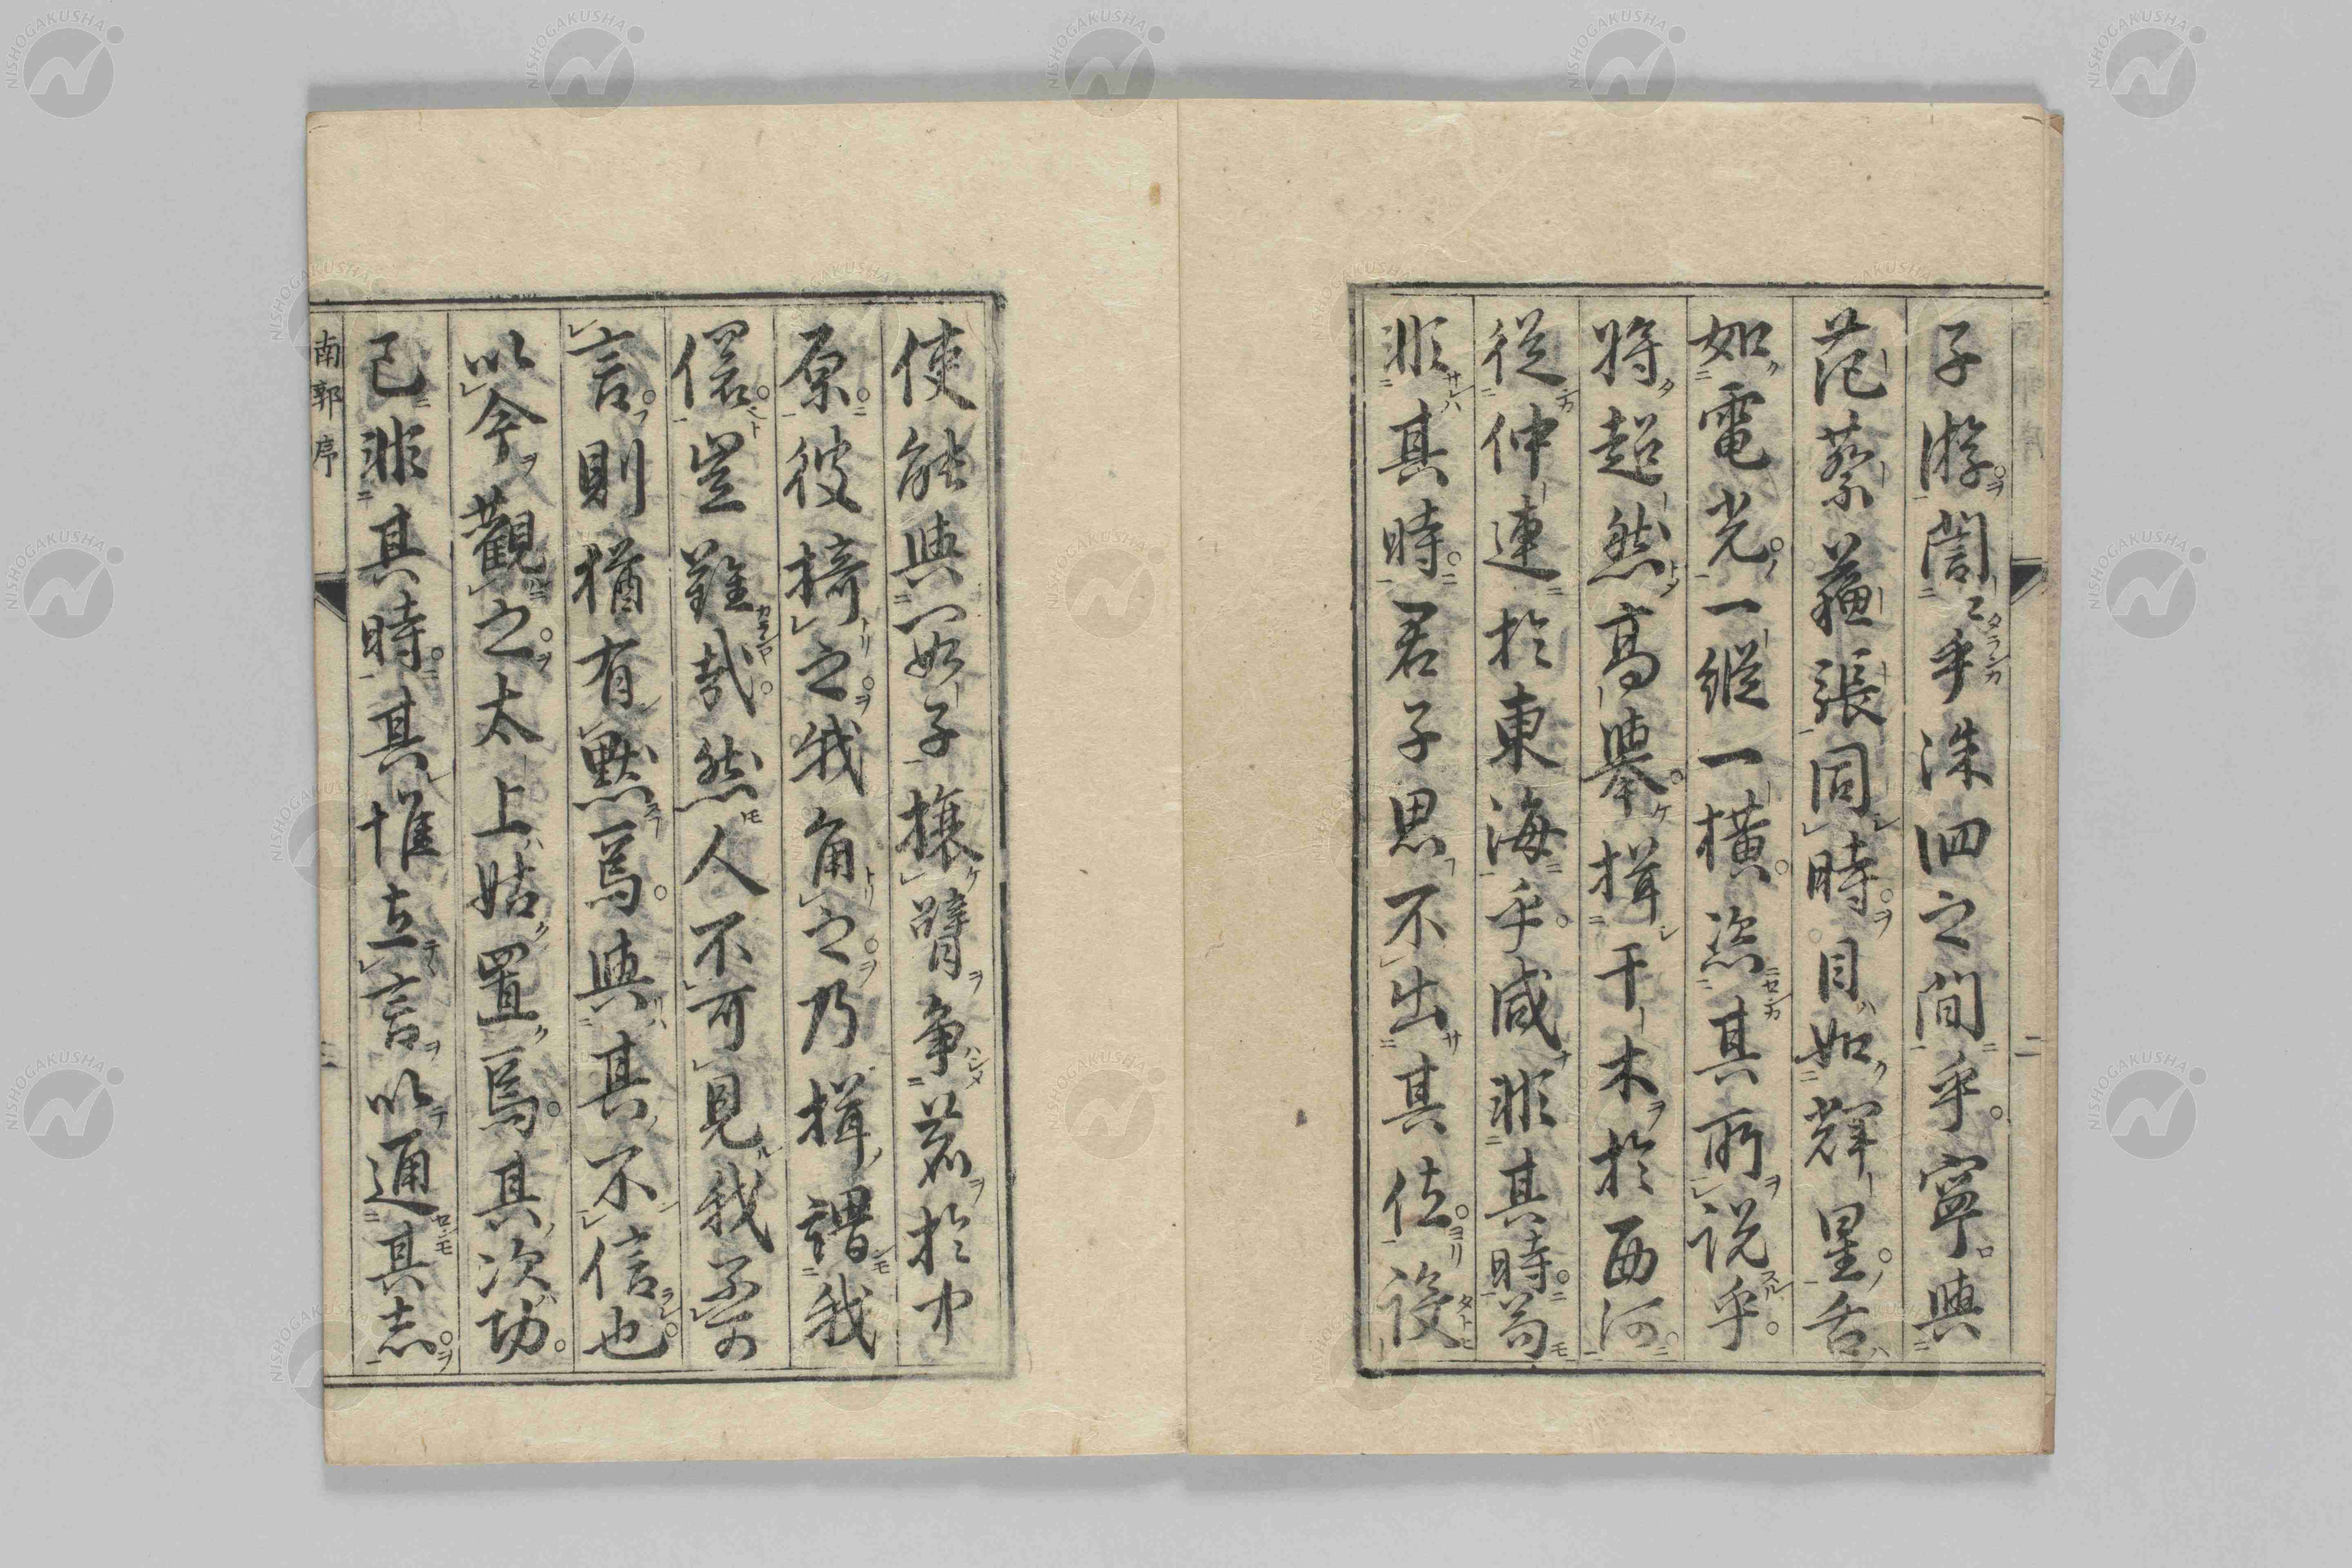 子游誾〻乎洙泗之間乎寧與
范蔡蘇張同時目如輝星舌
如電光一縱一橫恣其所說乎
將超然高擧揖干木於西河
從仲連於東海乎咸非其時苟
非其時君子思不出其位設
使能與一如子攘臂爭若於中
原彼掎之我角之乃揖謂我
儇豈難哉然人不可見我不可
言則猶有默焉與其不信也
以今觀之太上姑置焉其次功
已非其時其惟立言以通其志
南郭序
二
三
NISHOGAKUSHA